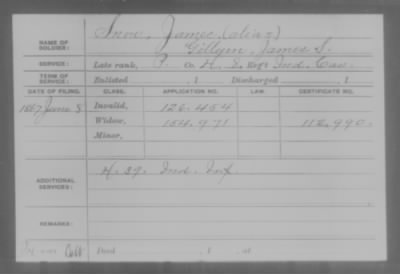 NAME OF SOLDIER: Snow, James (alias)
Gillym, James S.
SERVICE: Late rank, P. Co. H. 2, Reg't Ind. Cav.
TERM OF SERVICE: Enlisted , 1 Discharged , 1
DATE OF FILING. CLASS. APPLICATION NO. LAW. CERTIFICATE NO.
1867 June 8 Invalid, 126.454
Widow, 154.971 112,990.
Minor,
ADDITIONAL SERVICES: H. 39. Ind. Inf.
REMARKS:
Died , 1 , at